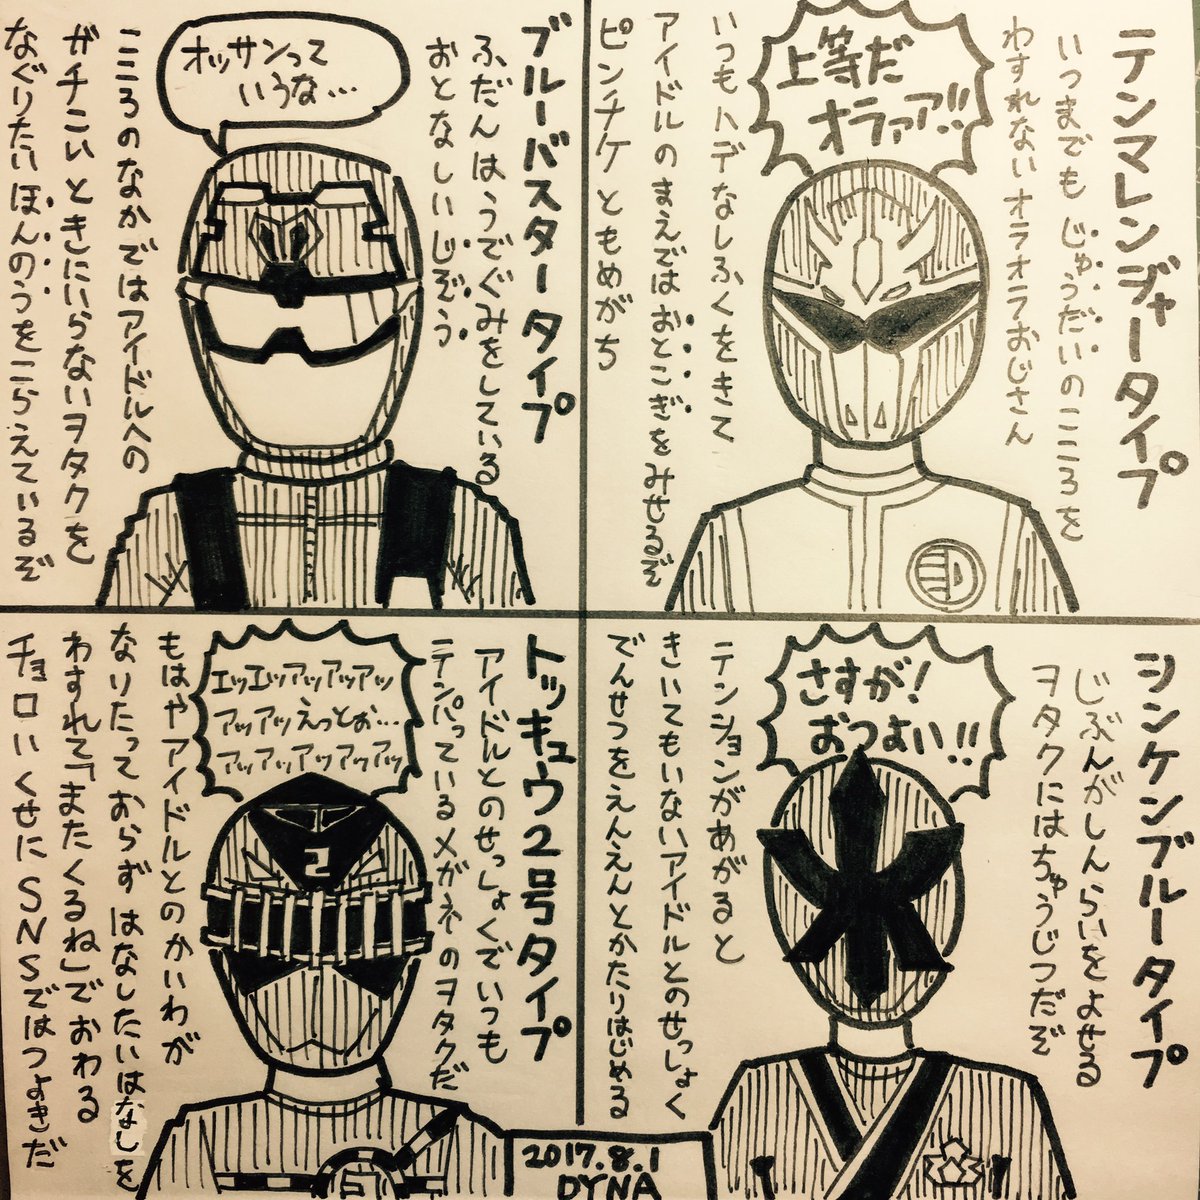 テンマレンジャータイプ
いつまでもじゅうだいのこころを
わすれないオラオラおじさん
上等だ
オラァア!!
いつもハデなしふくをきて
アイドルのまえではおとこぎをみせるぞ
ピンチケともめがち
ブルーバスタータイプ
ふだんはうでぐみをしている
おとなしいじぞう
オッサンって
いうな…
こころのなかではアイドルへの
ガチこいときにいらないヲタクを
なぐりたいほんのうをこらえているぞ
シンケンブルータイプ
じぶんがしんらいをよせる
ヲタクにはちゅうじつだぞ
さすが!
おつよい!!
テンションがあがると
きいてもいないアイドルとのせっしょく
でんせつをえんえんとかたりはじめる
トッキュウ2号タイプ
アイドルとのせっしょくでいつも
テンパっているメガネのヲタクだ
エッエッアッアッアッ
アッアッえっとぉ…
アッアッアッアッアッ
2
もはやアイドルとのかいわが
なりたっておらずはなしたいはなしを
わすれて「またくるね」でおわる
チョロいくせにSNSではつよきだ
2017.8.1
DYNA